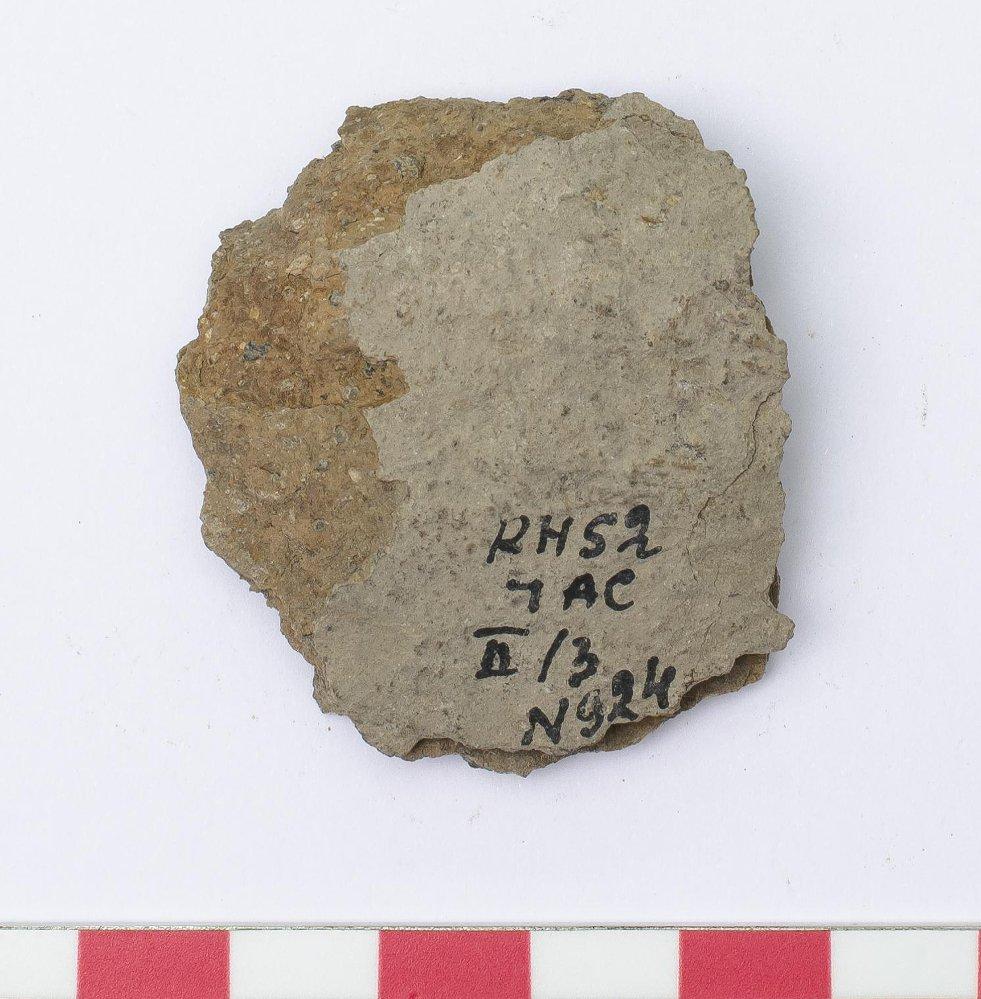 RH52
7AC
II/3
N924